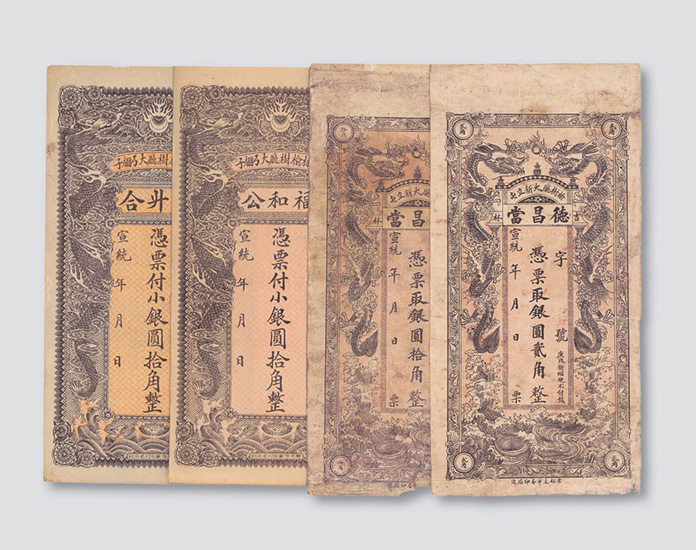 榆樹廳大新立屯
德昌當
吉林
字 號
憑票取銀圓貳角整
宣統 年 月 日 票
昌當
林
憑票取銀圓拾角整
宣統 年 月 日 票
福和公
憑票付小銀圓拾角整
宣統 年 月 日
升合
憑票付小銀圓拾角整
宣統 年 月 日